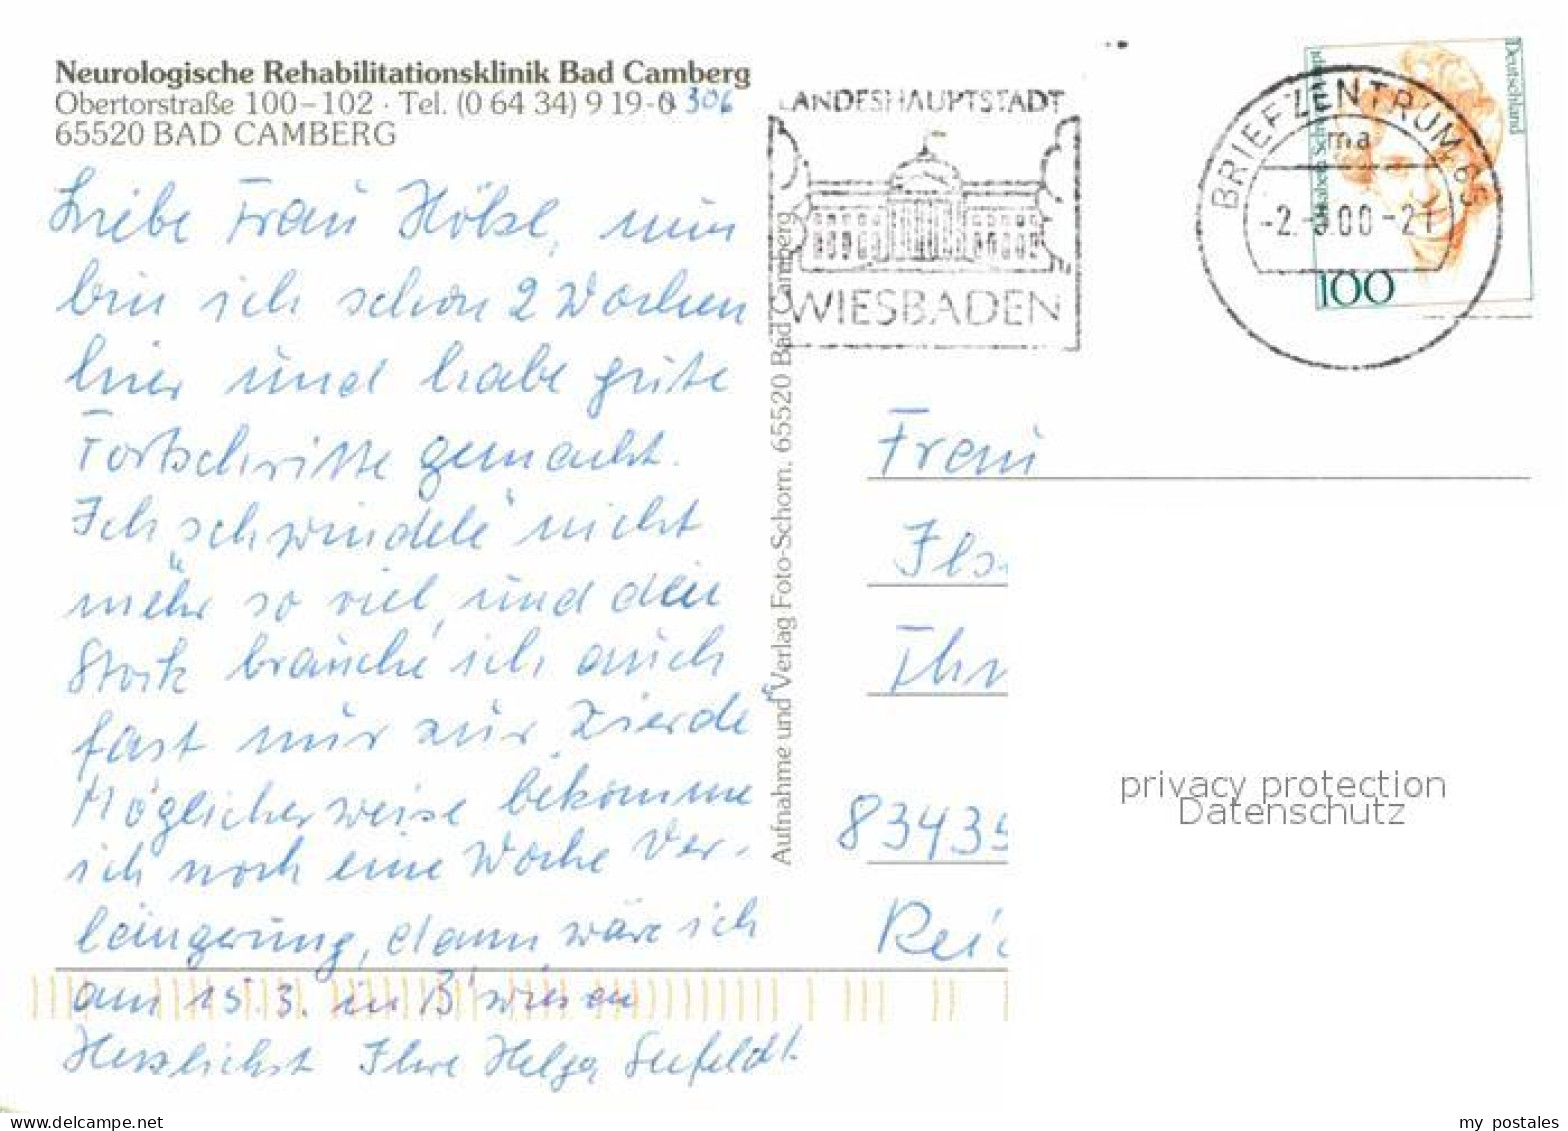 Neurologische Rehabilitationsklinik Bad Camberg
Obertorstraße 100–102 · Tel. (0 64 34) 9 19-0 306
65520 BAD CAMBERG
Liebe Frau Hölzl, nun
bin ich schon 2 Wochen
hier und habe gute
Fortschritte gemacht.
Ich „schwindele“ nicht
mehr so viel, und den
Stock brauche ich auch
fast nur zur „Zierde“
Möglicherweise bekomme
ich noch eine Woche Ver-
längerung, dann wäre ich
am 15.3. in B'wiesen
Herzlichst Ihre Helga Seefeldt
Aufnahme und Verlag Foto-Schorn, 65520 Bad Camberg
LANDESHAUPTSTADT
WIESBADEN
BRIEFZENTRUM 65
ma
-2.-3.00-21
Deutschland
Elisabeth Schwarzhaupt
100
Frau
Ilse
Thr
83435
Rei
privacy protection
Datenschutz
my postales